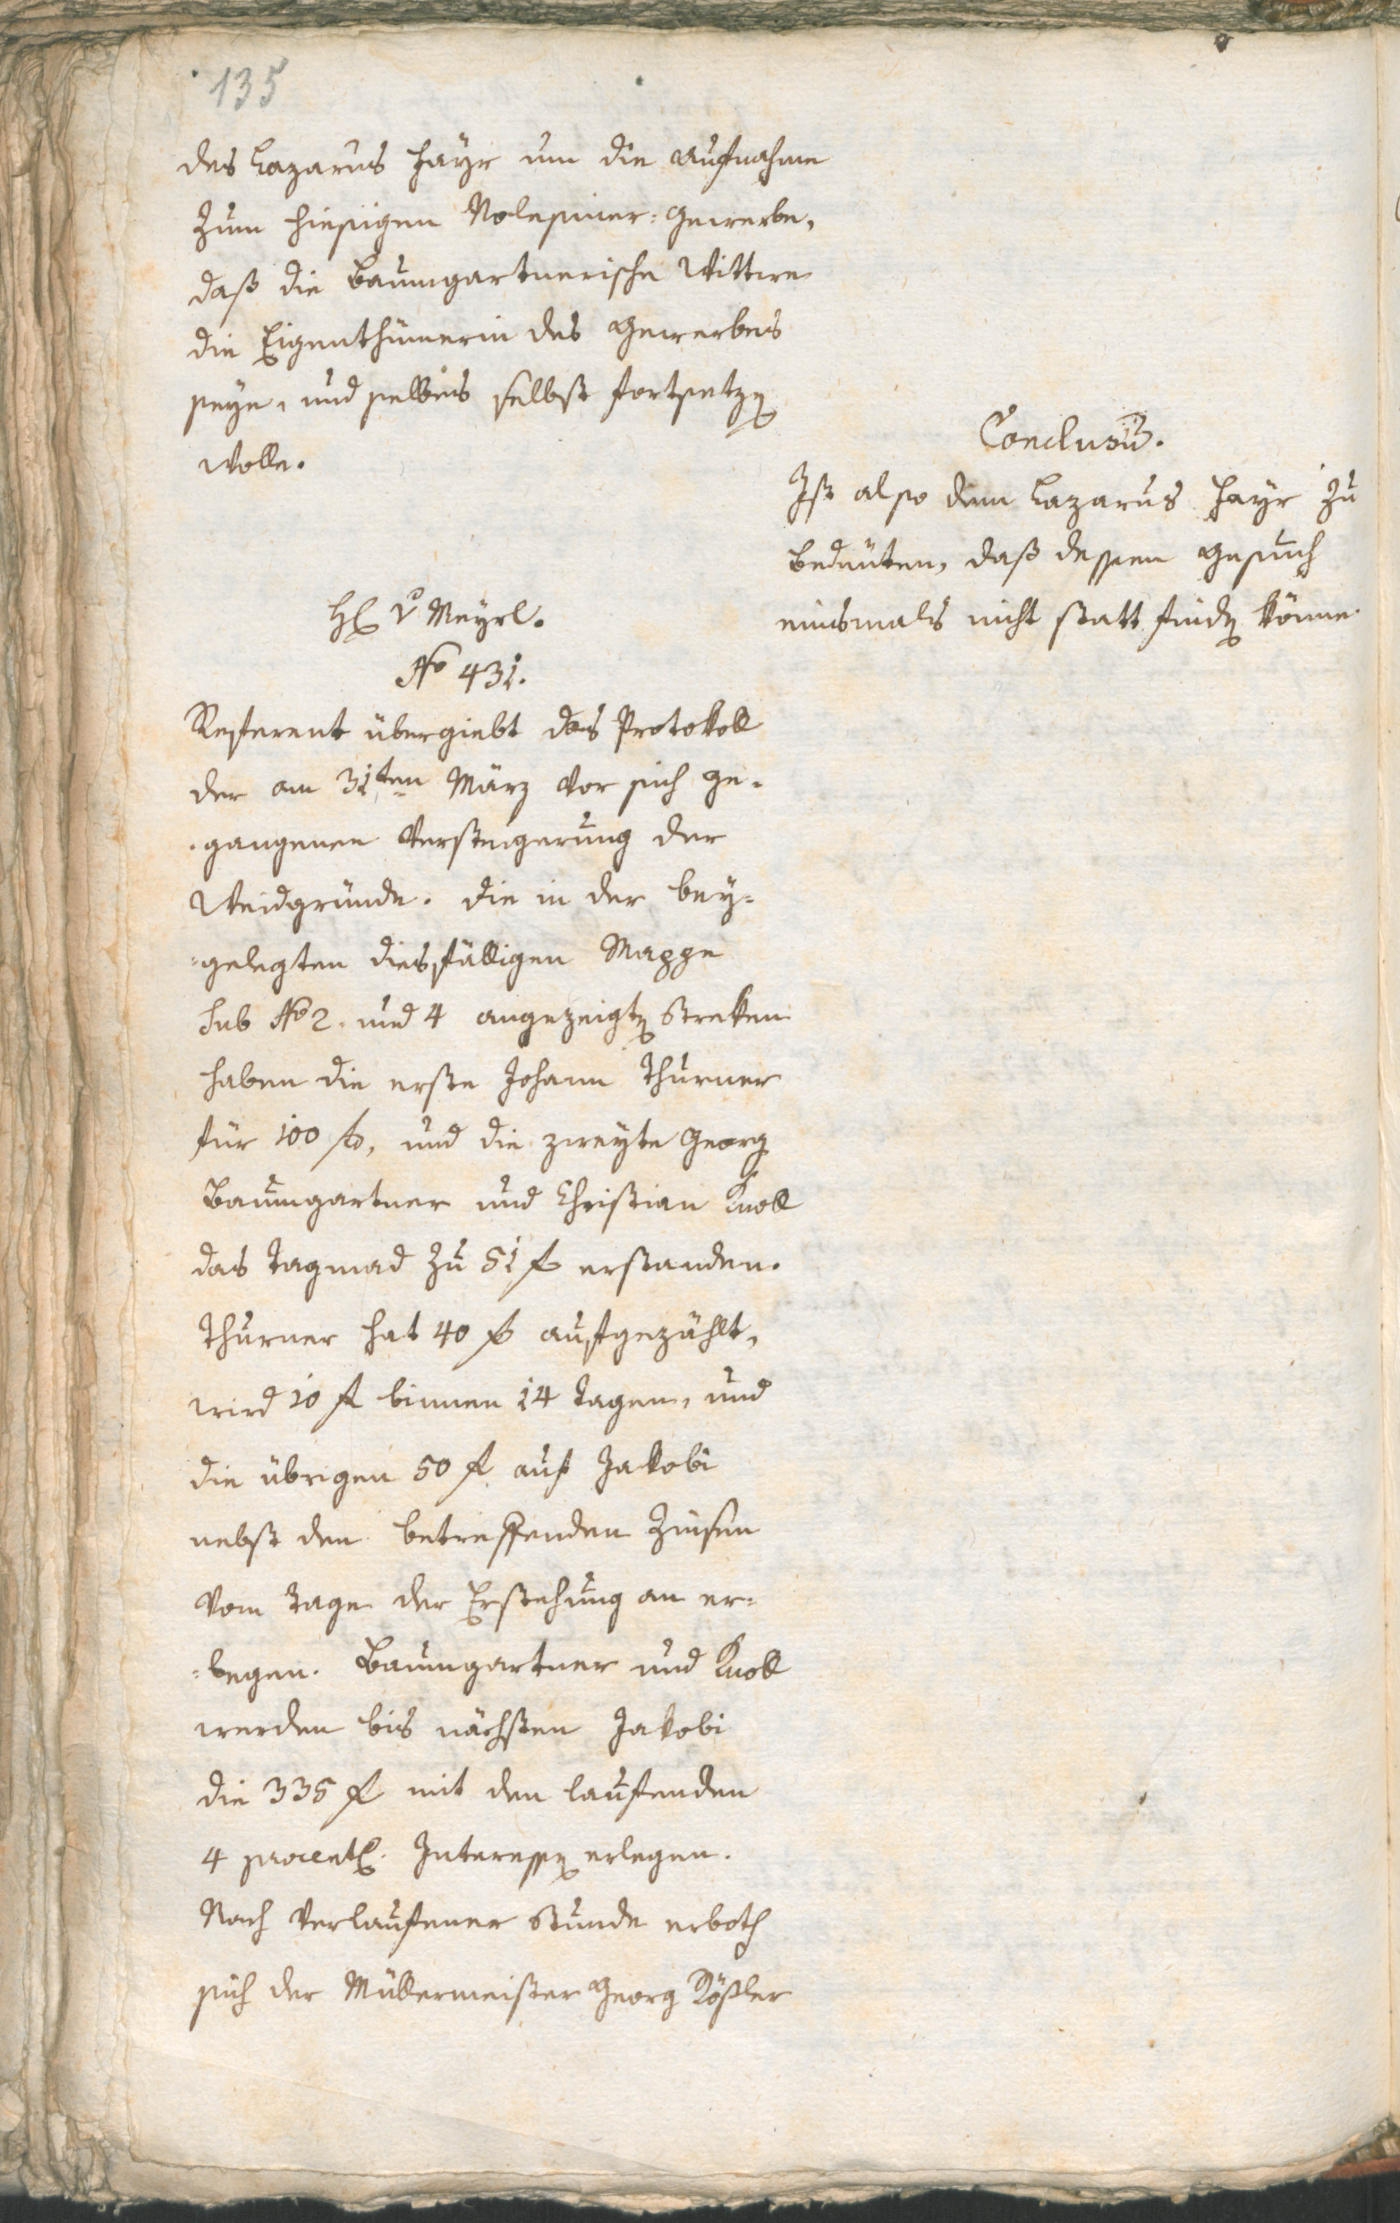 135
des Lazarus Hayr um die Aufnahme
zum hiesigen Nolesiner-Gewerbe,
daß die Baumgartnerische Wittwe
die Eigenthümerin des Gewerbes
seye, und selbes selbst fortsetzen
wolle.
Conclusū.
Ist also dem Lazarus Hayr zu
bedeuten, daß dessen Gesuch
einsmals nicht statt finden könne.
H. v Mayrl.
No 431.
Referent übergiebt das Protokoll
der am 31ten März vor sich ge-
gangenen Versteigerung der
Weidgründe. Die in der bey-
-gelegten diesfälligen Mappe
sub No 2. und 4 angezeigten Streken
haben die erste Johann Thurner
für 100 f, und die zweyte Georg
Baumgartner und Christian Knoll
das Tagmad zu 51 f erstanden.
Thurner hat 40 f aufgezählt,
wird 10 f binnen 14 Tagen, und
die übrigen 50 f auf Jakobi
nebst den betreffenden Zinsen
vom Tage der Erstehung an er-
-legen. Baumgartner und Knoll
werden bis nächsten Jakobi
die 335 f mit den laufenden
4 procentl. Interessen erlegen.
Nach verlaufener Stunde erboth
sich der Müllermeister Georg Rößler